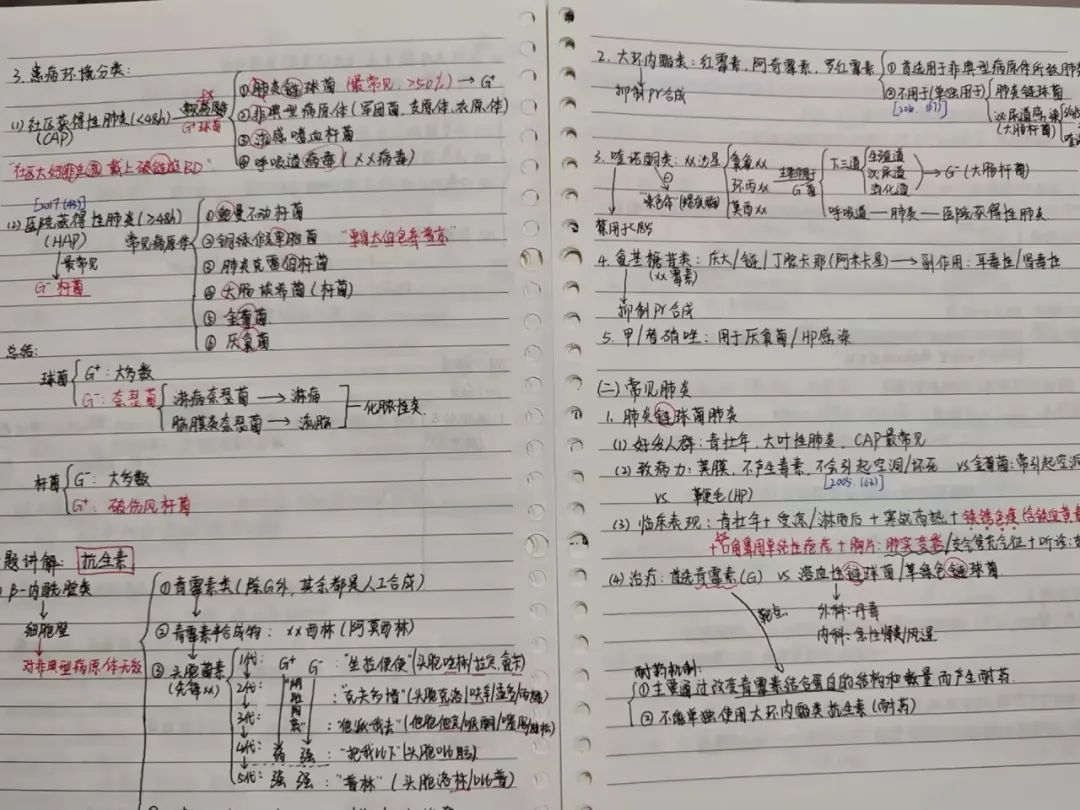 3. 患病环境分类:
(1) 社区获得性肺炎(<48h) (CAP)
G⁺球菌
① 肺炎链球菌 (最常见, >50%) → G⁺
② 非典型病原体 (军团菌, 支原体, 衣原体)
③ 流感嗜血杆菌
④ 呼吸道病毒 (XX病毒)
[2017 (43)]
(2) 医院获得性肺炎(≥48h) (HAP) 常见病原体
最常见
G⁻杆菌
① 鲍曼不动杆菌
② 铜绿假单胞菌
③ 肺炎克雷伯杆菌
④ 大肠埃希菌 (杆菌)
⑤ 金葡菌
⑥ 厌氧菌
总结:
球菌
G⁺: 大多数
G⁻: 奈瑟菌
淋病奈瑟菌 → 淋病
脑膜炎奈瑟菌 → 流脑
化脓性炎
杆菌
G⁻: 大多数
G⁺: 破伤风杆菌
题讲解: 抗生素
β-内酰胺类
细胞壁
对非典型病原体无效
① 青霉素类 (除G外, 其余都是人工合成)
② 青霉素半合成物: XX西林 (阿莫西林)
③ 头孢菌素 (先锋XX)
1代: G⁺ G⁻
2代:
3代:
4代: 药 强 "把我比下" (头孢吡肟)
5代: 强 强 "普林" (头孢洛林/
2. 大环内酯类: 红霉素, 阿奇霉素, 罗红霉素
抑制Pr合成
① 首选用于非典型病原体所致肺
② 不用于(单独用于)
肺炎链球菌
泌尿道感染 (大肠杆菌)
3. 喹诺酮类: XX沙星
氧氟XX
环丙XX
莫西XX
G⁻菌
禁用于<18岁
下三道
生殖道
泌尿道
消化道
→ G⁻ (大肠杆菌)
呼吸道 — 肺炎 — 医院获得性肺炎
4. 氨基糖苷类: 庆大/链/丁胺卡那(阿米卡星) → 副作用: 耳毒性/肾毒性
(XX霉素)
抑制Pr合成
5. 甲/替硝唑: 用于厌氧菌/HP感染
(二) 常见肺炎
1. 肺炎链球菌肺炎
(1) 好发人群: 青壮年, 大叶性肺炎, CAP最常见
(2) 致病力: 荚膜, 不产生毒素, 不会引起空洞/坏死 vs 金葡菌: 常引起空洞
[2005. (63)]
vs 鞭毛(HP)
(3) 临床表现: 青壮年 + 受凉/淋雨后 + 寒战高热 + 铁锈色痰 (含铁血黄素
+ 口角鼻周单纯性疱疹 + 胸片: 肺实变影/支气管充气征 + 听诊:
(4) 治疗: 首选青霉素(G) vs 溶血性链球菌/草绿色链球菌
外科: 丹毒
内科: 急性肾炎/风湿
耐药机制:
① 主要通过改变青霉素结合蛋白的结构和数量而产生耐药.
② 不能单独使用大环内酯类抗生素 (耐药)